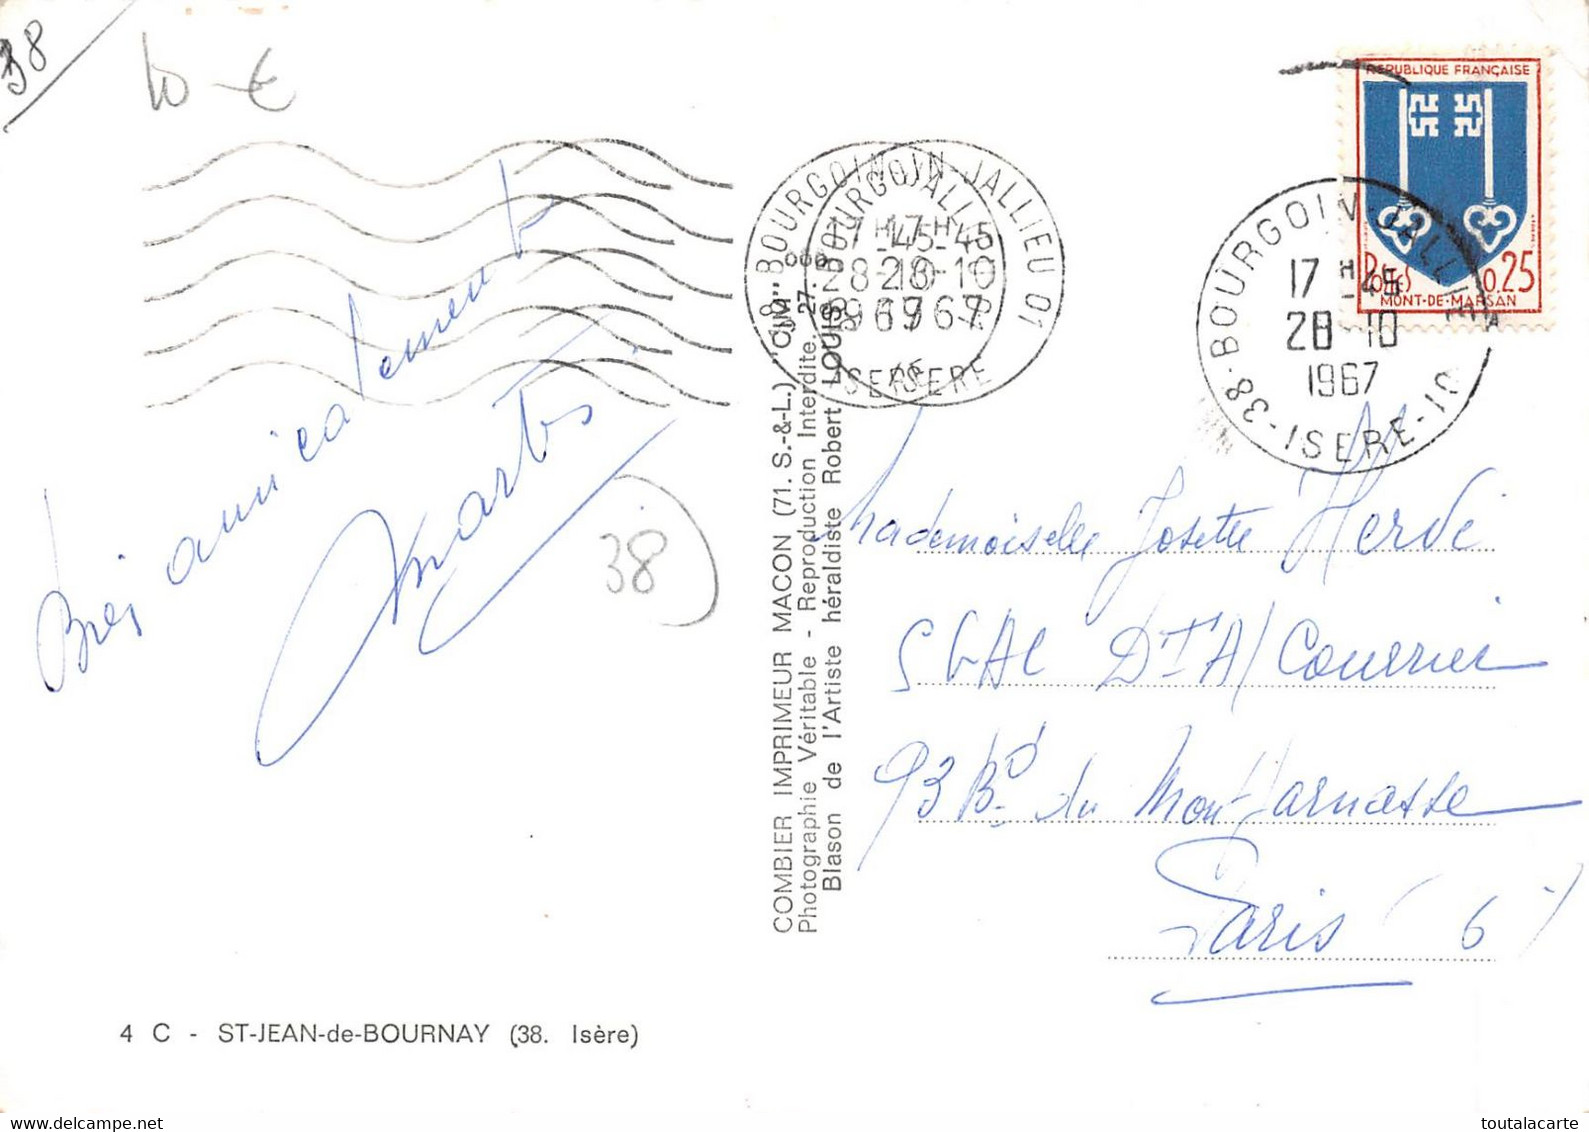 38
10 €
Bien amicalement
38
RÉPUBLIQUE FRANÇAISE
Postes 0.25
MONT-DE-MARSAN
38-BOURGOIN-JALLIEU 01
17H-45
28-10
1967
ISERE
38-BOURGOIN-JALLIEU
17H-45
28-10
1967
ISERE-10
COMBIER IMPRIMEUR MACON (71. S.-&-L.) "CIM"
Photographie Véritable - Reproduction Interdite. 27.
Blason de l'Artiste héraldiste Robert LOUIS
Mademoiselle Josette Hervé
SGAC DTA/Courrier
93 Bd du Montparnasse
Paris (6)
4 C - ST-JEAN-de-BOURNAY (38. Isère)
My Own Collection
toutalacarte